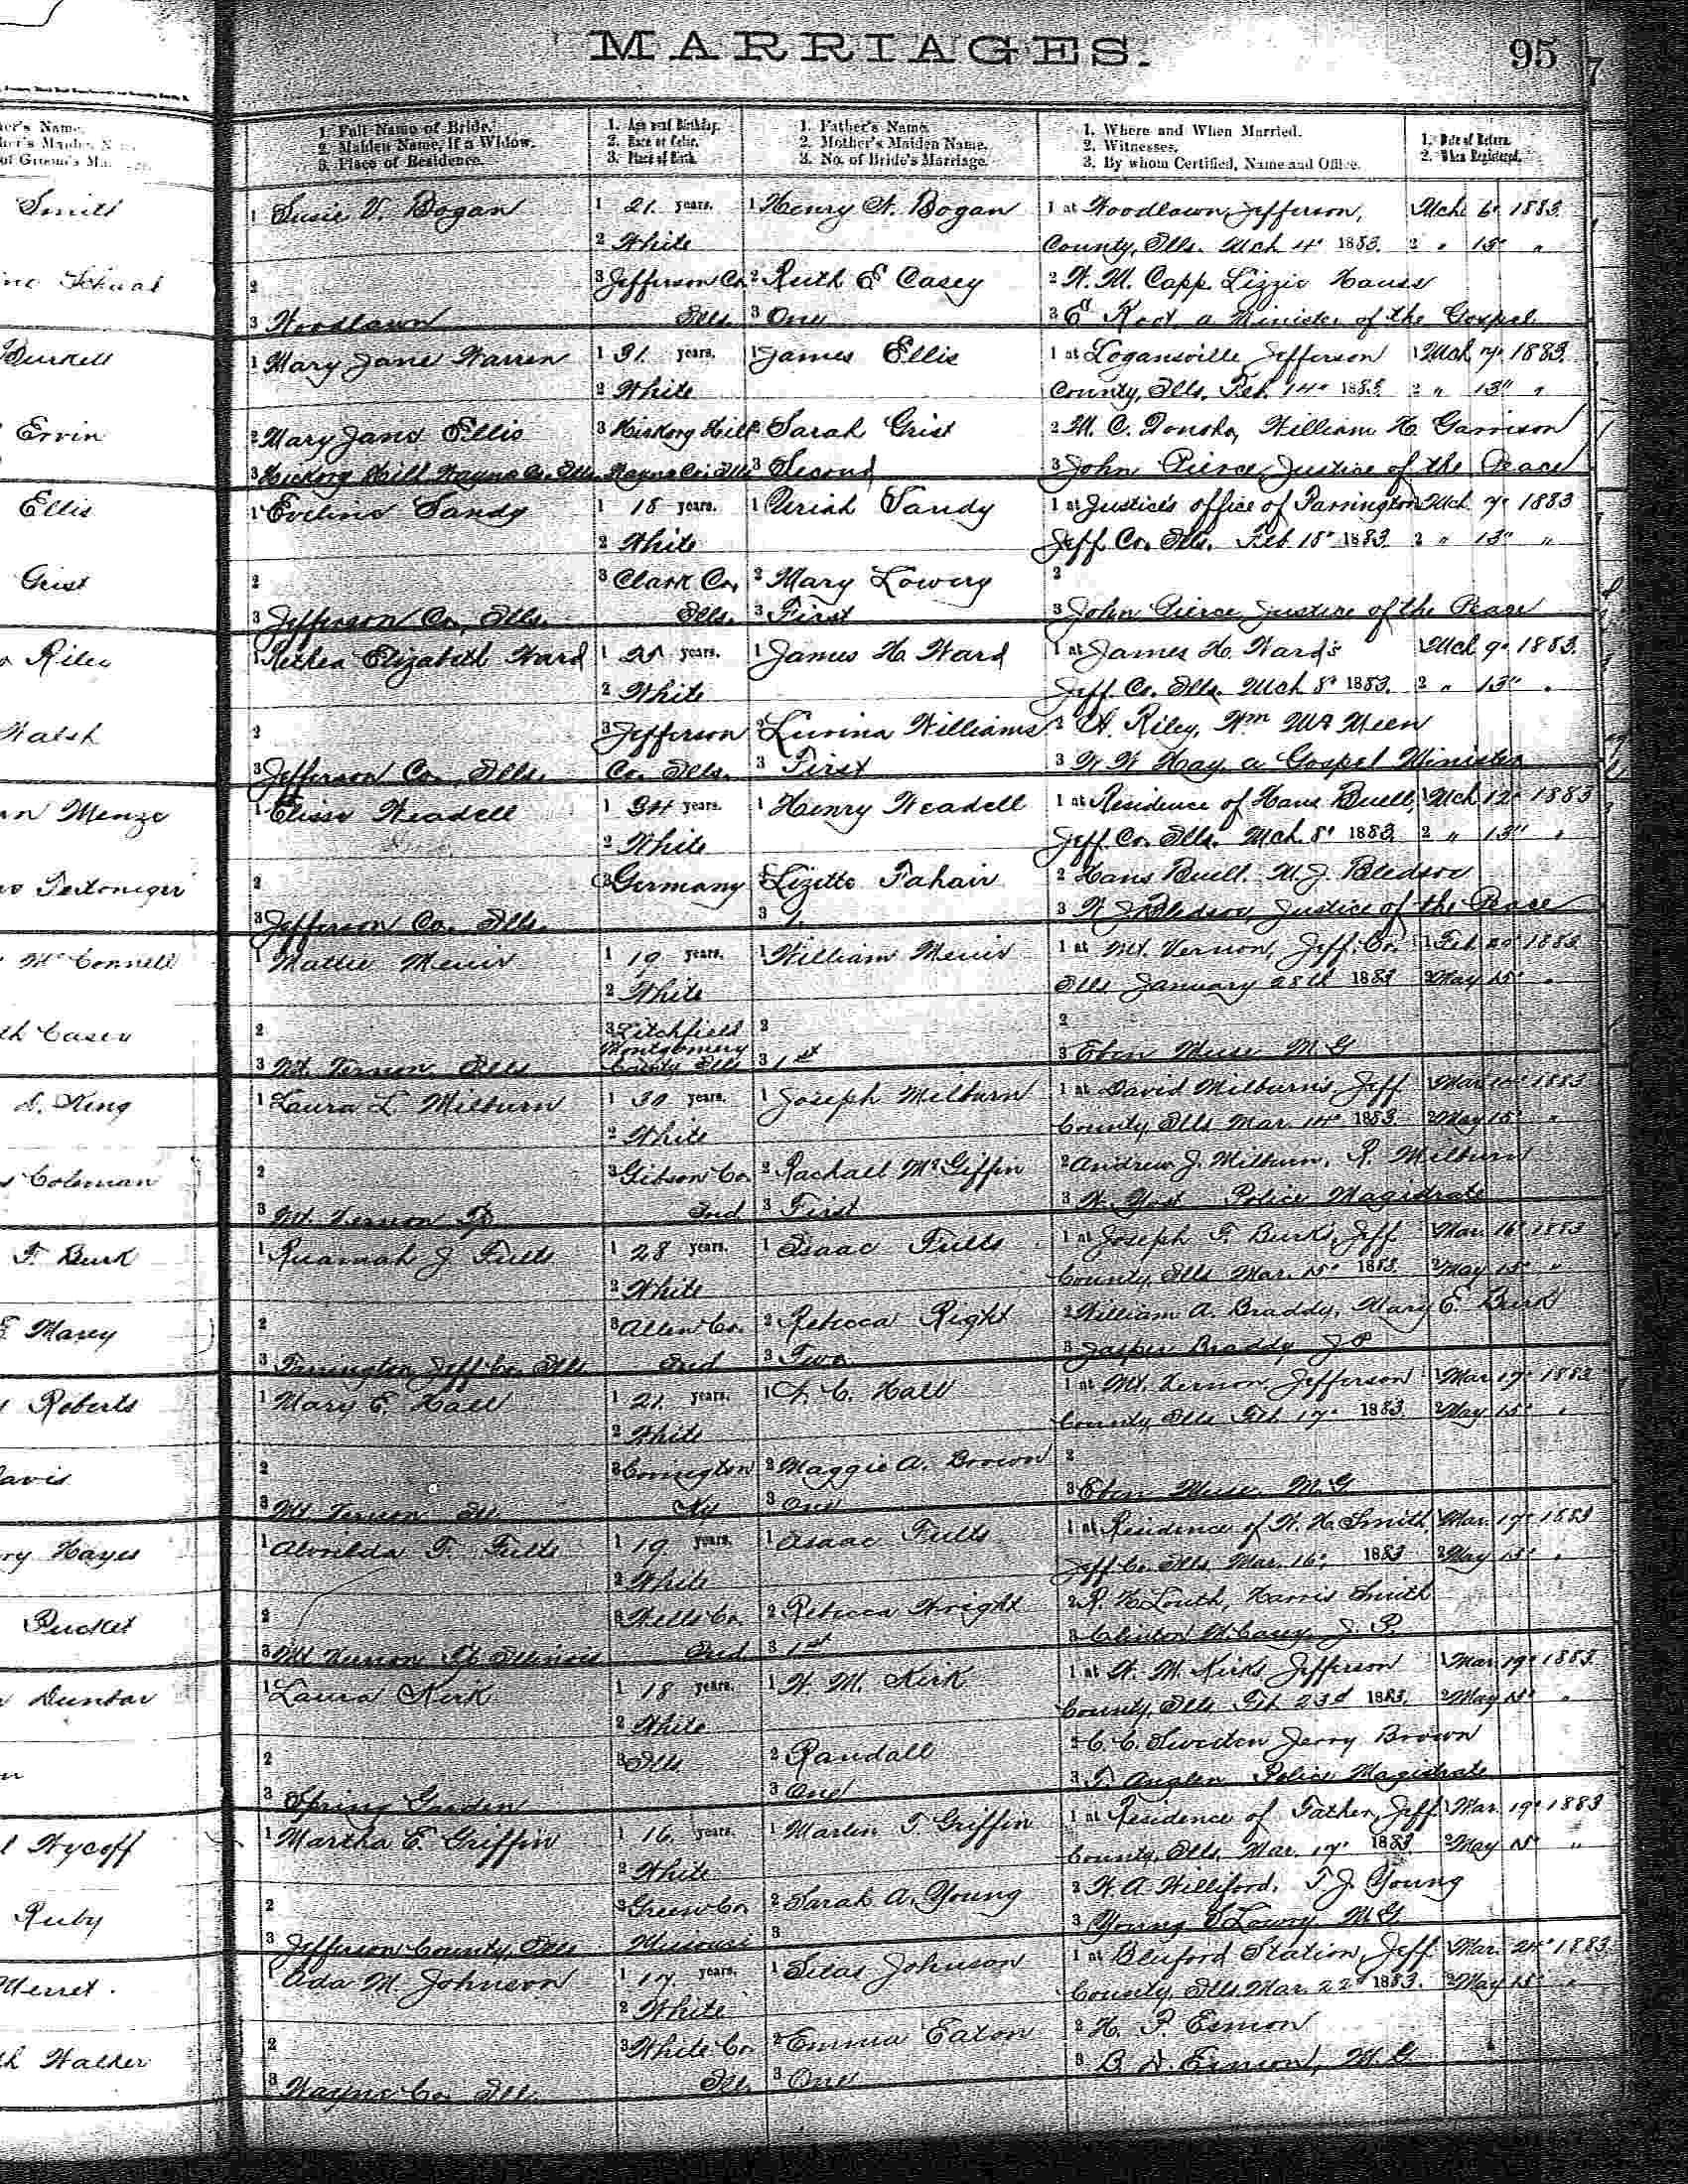 MARRIAGES.
95
1. Full Name of Bride.
2. Maiden Name, if a Widow.
3. Place of Residence.
1. Age next Birthday.
2. Race or Color.
3. Place of Birth.
1. Father's Name.
2. Mother's Maiden Name.
3. No. of Bride's Marriage.
1. Where and When Married.
2. Witnesses.
3. By whom Certified, Name and Office.
1. Date of Return.
2. When Registered.
Smith
1 Susie V. Bogan 1 21 years. 1 Henry A. Bogan 1 at Woodlawn, Jefferson, Mch 6" 1883.
2 White County, Ills. Mch 4" 1883. 2 " 15" "
2 3 Jefferson Co. 2 Ruth E Casey 2 W. M. Capp Lizzie
3 Woodlawn Ills. 3 One 3 E Root, a Minister of the Gospel.
Burkett
1 Mary Jane Warren 1 31. years. 1 James Ellis 1 at Logansville Jefferson 1 Mch 7" 1883.
2 White County, Ills. Feb. 14" 1883. 2 " 13" "
Ervin
2 Mary Jane Ellis 3 Hickory Hill 2 Sarah Grist 2 M. C. Donoho, William H. Garrison
3 Hickory Hill Wayne Co. Ills. Wayne Co. Ills 3 Second 3 John Pierce, Justice of the Peace
Ellis
1 Eveline Sandy 1 18 years. 1 Uriah Sandy 1 at Justice's office of Farrington Mch 7" 1883
2 White Jeff. Co. Ills. Feb. 18" 1883. 2 " 13" "
Grist
2 3 Clark Co, 2 Mary Lowery 2
3 Jefferson Co., Ills. Ills. 3 First 3 John Pierce, Justice of the Peace
Riley
1 Elizabeth Ward 1 years. 1 James H. Ward 1 at James H. Ward's Mch 9" 1883.
2 White Jeff. Co. Ills. Mch 8" 1883. 2 " 13" "
Walsh
2 3 Jefferson 2 Lurina Williams 2 A. Riley, Wm
3 Jefferson Co., Ills. Co. Ills. 3 First 3 W W Hay, a Gospel Minister
Menze
1 Elise Weadell 1 34 years. 1 Henry Weadell 1 at Residence of Hans Buell, Mch 12" 1883
2 White Jeff. Co. Ills. Mch. 8" 1883. 2 " 13" "
2 3 Germany 2 Lizette Fahair 2 Hans Buell. M. J. Bledsoe
3 Jefferson Co. Ills. 3 1. 3 W J Bledsoe, Justice of the Peace
McConnell
1 Mattie 1 19 years. 1 William 1 at Mt. Vernon, Jeff. Co. 1 Feb. 20" 1883.
2 White Ills January 28th 1883 2 May 15" "
Casey
2 3 Litchfield 2 2
Montgomery
3 Mt. Vernon, Ills County Ills 3 1st 3 Eben Muse M. G
King
1 Laura L. Milburn 1 30 years. 1 Joseph Milburn 1 at David Milburn's Jeff 1883
2 White County, Ills Mar. 14" 1883. 2 May 15" "
Coleman
2 3 Gibson Co. 2 Rachall McGiffin 2 Andrew J. Milburn, R. Milburn
3 Mt. Vernon Ind. 3 First 3 Police Magistrate
F. Burk
1 Ruamah J. Fults 1 28 years. 1 Isaac Fults 1 at Joseph F. Burk's, Jeff. Mar. 16" 1883
2 White County, Ills Mar. 15" 1883. 2 May 15" "
Marey
2 3 Allen Co. 2 Rebecca Right 2 William A. Braddy, Mary E. Burk
3 Farrington, Jeff Co. Ills Ind 3 Two 3 Jasper Braddy J P
Roberts
1 Mary E. Hall 1 21. years. 1 C. Hall 1 at Mt. Vernon, Jefferson 1 Mar 17" 1883.
2 White County Ills Feb. 17" 1883. 2 May 15" "
2 3 Covington 2 Maggie A. Brown 2
3 Mt. Vernon Ill Ky 3 One 3 Eben Muse M. G
Hayes
1 F. Fults 1 19. years. 1 Isaac Fults 1 at Residence of W. H. Smith Mar. 17" 1883
2 White Jeff Co. Ills Mar. 16" 1883 2 May 15" "
Pucket
2 3 Wells Co. 2 Rebecca Wright 2 R. H Louth, Harris Smith
3 Mt Vernon Illinois Ind 3 1st 3 Clinton M. Casey J. P.
Dunbar
1 Laura Kirk 1 18 years. 1 W. M. Kirk 1 at W. M. Kirks Jefferson 1 Mar 19" 1883.
2 White County, Ills Feb. 23d 1883. 2 May 15" "
2 3 Ills 2 Randall 2 C. C. Jerry Brown
3 Spring Garden 3 One 3 Police Magistrate
Wycoff
1 Martha E. Griffin 1 16. years. 1 Martin T. Griffin 1 at Residence of Father, Jeff Mar. 19" 1883
2 White County, Ills, Mar. 17" 1883. 2 May 15" "
Ruby
2 3 Green Co. 2 Sarah A. Young 2 W. A. Williford. T. J. Young
3 Jefferson County, Ills Missouri 3 3 Young S Lowry, M G
1 Ada M. Johnson 1 17. years. 1 Silas Johnson 1 at Bluford Station, Jeff Mar. 24" 1883.
2 White County, Ills. Mar. 22d 1883. 2 May 15" "
Walker
2 3 White Co. 2 Emma Eaton 2 H. P. Esmon
3 Wayne Co. Ill. Ill. 3 One 3 B. D. Esmon, M. G